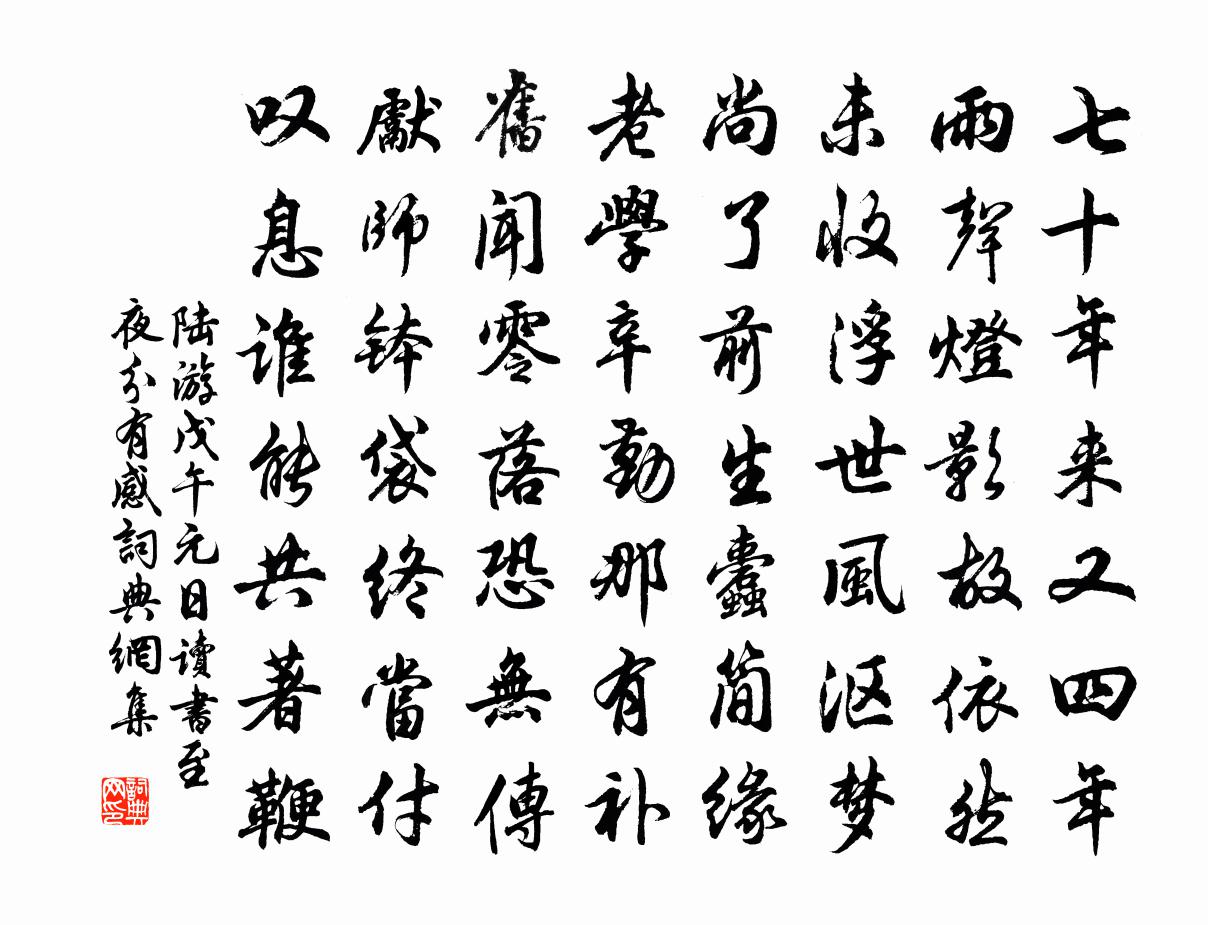 七十年来又四年
雨聲燈影故依然
未收浮世風漚梦
尚了前生蠹簡缘
老學辛勤那有补
舊聞零落恐無傳
獻師鉢袋终當付
叹息谁能共著鞭
陆游戊午元日读書至
夜分有感詞典網集
詞典
网印